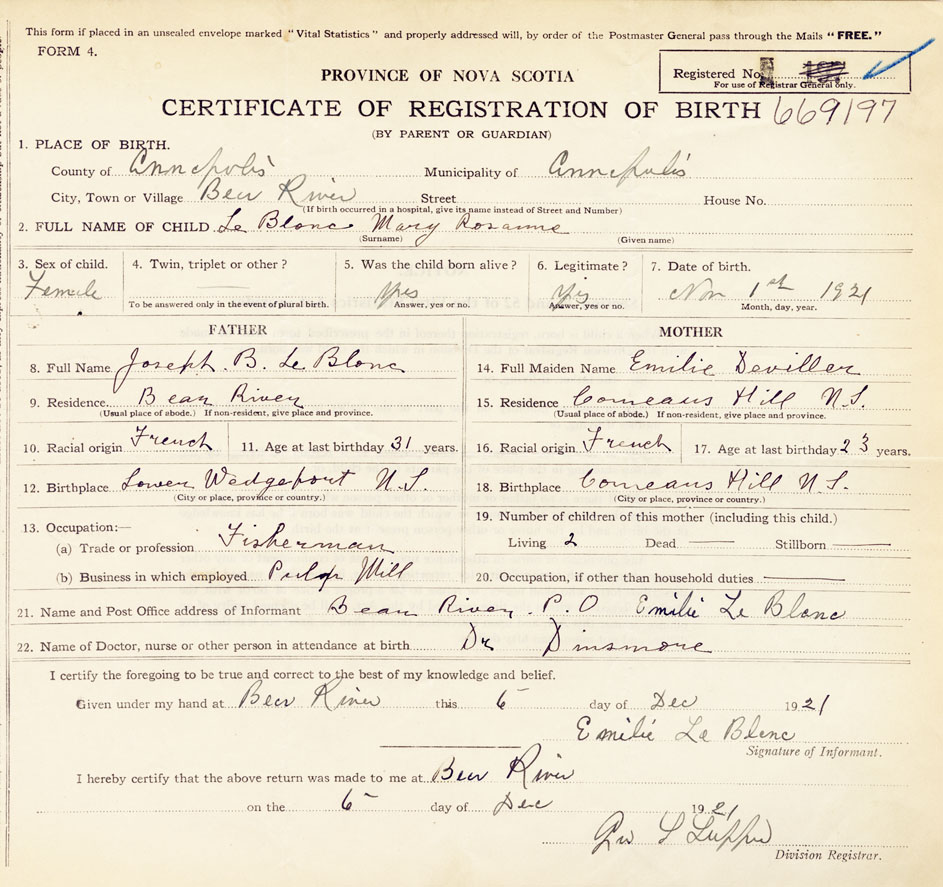 This form if placed in an unsealed envelope marked "Vital Statistics" and properly addressed will, by order of the Postmaster General pass through the Mails "FREE."
FORM 4.
Registered No.
For use of Registrar General only.
PROVINCE OF NOVA SCOTIA
CERTIFICATE OF REGISTRATION OF BIRTH 669197
(BY PARENT OR GUARDIAN)
1. PLACE OF BIRTH.
County of Annapolis Municipality of Annapolis
City, Town or Village Bear River Street House No.
(If birth occurred in a hospital, give its name instead of Street and Number)
2. FULL NAME OF CHILD Le Blanc Mary Rosanne
(Surname) (Given name)
3. Sex of child. 4. Twin, triplet or other? 5. Was the child born alive? 6. Legitimate? 7. Date of birth.
Female yes yes Nov 1st 1921
To be answered only in the event of plural birth. Answer, yes or no. Answer, yes or no. Month, day, year.
FATHER MOTHER
8. Full Name Joseph. B. Le Blanc 14. Full Maiden Name Emilie Deviller
9. Residence Bear River 15. Residence Comeaus Hill N.S.
(Usual place of abode.) If non-resident, give place and province. (Usual place of abode.) If non-resident, give place and province.
10. Racial origin French 11. Age at last birthday 31 years. 16. Racial origin French 17. Age at last birthday 23 years.
12. Birthplace Lower Wedgeport N.S. 18. Birthplace Comeaus Hill N.S.
(City or place, province or country.) (City or place, province or country.)
13. Occupation:— 19. Number of children of this mother (including this child.)
(a) Trade or profession Fisherman Living 2 Dead Stillborn
(b) Business in which employed Pulp Mill 20. Occupation, if other than household duties
21. Name and Post Office address of Informant Bear River. P.O Emilie Le Blanc
22. Name of Doctor, nurse or other person in attendance at birth Dr Dinsmore
I certify the foregoing to be true and correct to the best of my knowledge and belief.
Given under my hand at Bear River this 6 day of Dec 1921
Emilie Le Blanc
Signature of Informant.
I hereby certify that the above return was made to me at Bear River
on the 6 day of Dec 1921
Division Registrar.